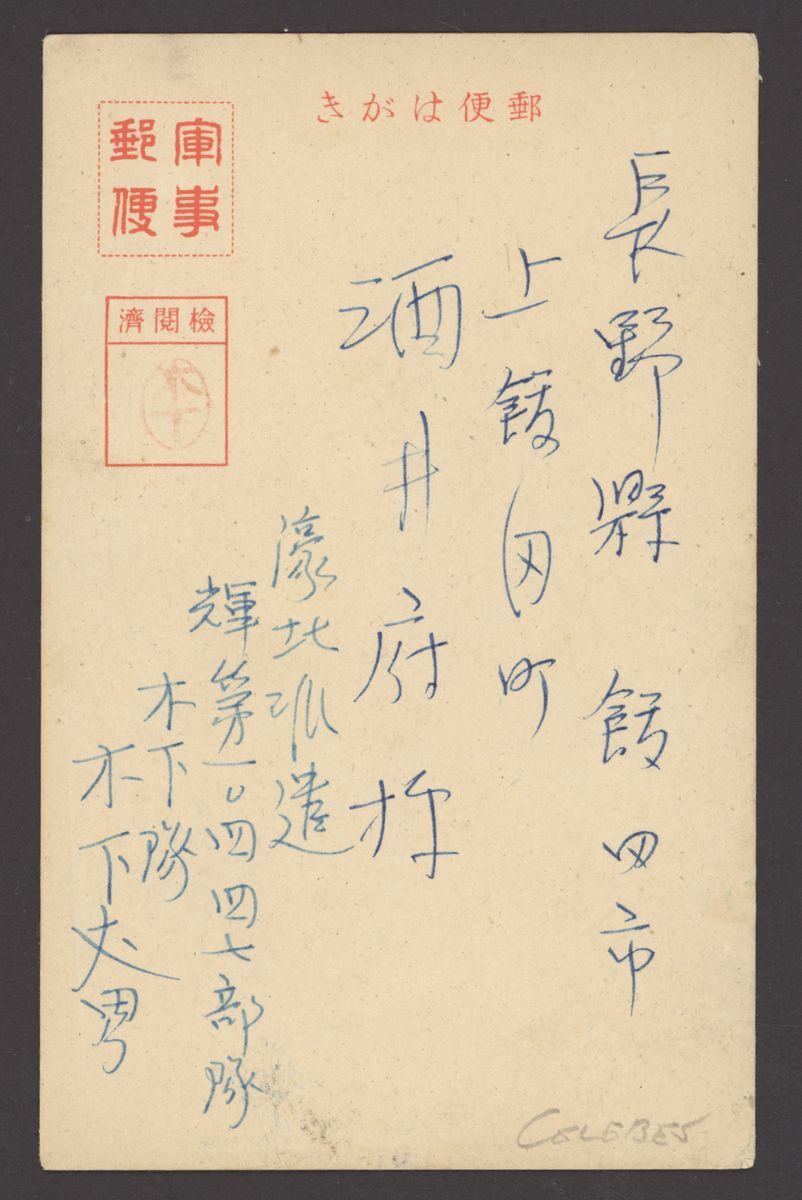 郵便はがき
軍事
郵便
檢閲濟
長野縣 飯田市
上飯田町
酒井府 様
濠北派遣
輝第一〇四四七部隊
木下隊
木下丈男
CELEBES